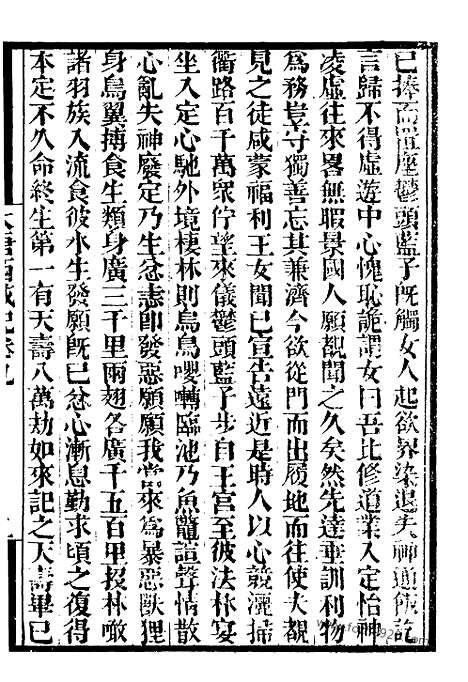 已捧而置座鬱頭藍子既觸女人起欲界染退失神通飯訖
言歸不得虛遊中心愧恥詭謂女曰吾比修道業入定怡神
凌虛往來畧無暇景國人願覩聞之久矣然先達垂訓利物
爲務豈守獨善忘其兼濟今欲從門而出履地而往使夫覩
見之徒咸蒙福利王女聞已宣告遠近是時人以心競灑掃
衢路百千萬衆佇望來儀鬱頭藍子步自王宮至彼法林宴
坐入定心馳外境棲林則鳥烏嚶囀臨池乃魚鼈諠聲情散
心亂失神廢定乃生忿恚即發惡願願我當來爲暴惡獸狸
身鳥翼搏食生類身廣三千里兩翅各廣千五百里投林噉
諸羽族入流食彼水生發願既已忿心漸息勤求頃之復得
本定不久命終生第一有天壽八萬劫如來記之天壽畢已
大唐西域記卷九